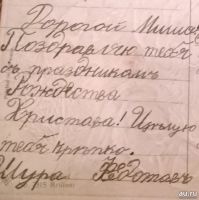 Дорогой Миша
Поздравляю тебя
съ праздникомъ
Рождества
Христова! Цѣлую
тебя крѣпко.
Шура
au.ru